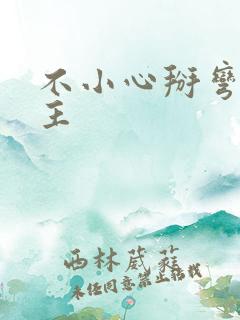 不小心掰弯
主
西林葳蕤
未经同意禁止转载